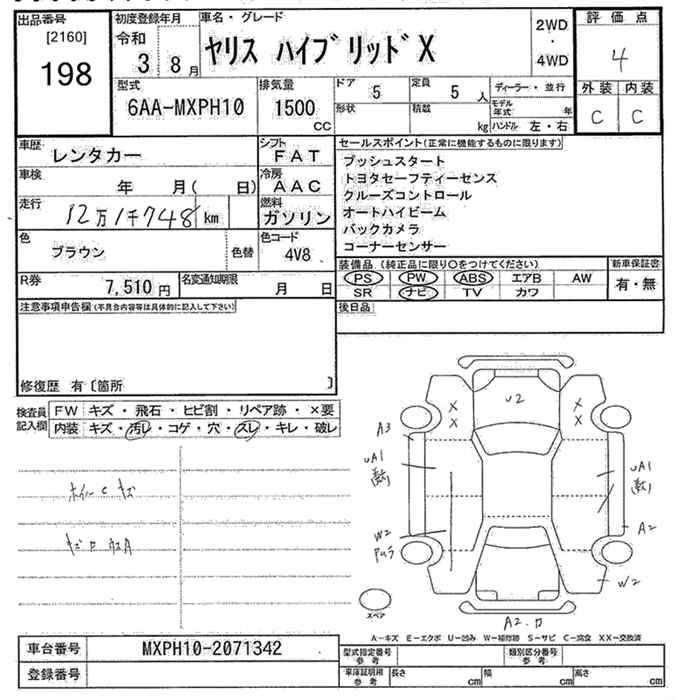 出品番号
[2160]
198
初度登録年月
令和
3 8月
車名・グレード
ヤリス ハイブリッドX
2WD
・
4WD
評価点
4
外装 内装
C C
型式
6AA-MXPH10
排気量
1500
CC
ドア 5
定員 5 人
形状
積載 kg
ディーラー・並行
モデル年式 年
ハンドル 左・右
車歴
レンタカー
シフト
FAT
車検
年 月( 日)
冷房
AAC
走行
12万1千748 km
燃料
ガソリン
色
ブラウン
色替
色コード
4V8
R券
7,510円
名変通知期限
月 日
セールスポイント(正常に機能するものに限ります)
プッシュスタート
トヨタセーフティーセンス
クルーズコントロール
オートハイビーム
バックカメラ
コーナーセンサー
装備品 (純正品に限り○をつけてください)
PS PW ABS エアB AW
SR ナビ TV カワ
新車保証書
有・無
後日品
注意事項申告欄(不具合内容等は具体的に記入して下さい)
修復歴 有〔箇所 〕
検査員
記入欄
FW キズ・飛石・ヒビ割・リペア跡・×要
内装 キズ・汚レ・コゲ・穴・スレ・キレ・破レ
ホイールCキズ
U2
X X
X X
A3
UA1
UA1
W2
A2
W2
A2.
スペア
A−キズ E−エクボ U−凹み W−補修跡 S−サビ C−腐食 XX−交換済
車台番号
MXPH10-2071342
登録番号
型式指定番号
参考
類別区分番号
参考
車庫証明用
参考
長さ cm
幅 cm
高さ cm